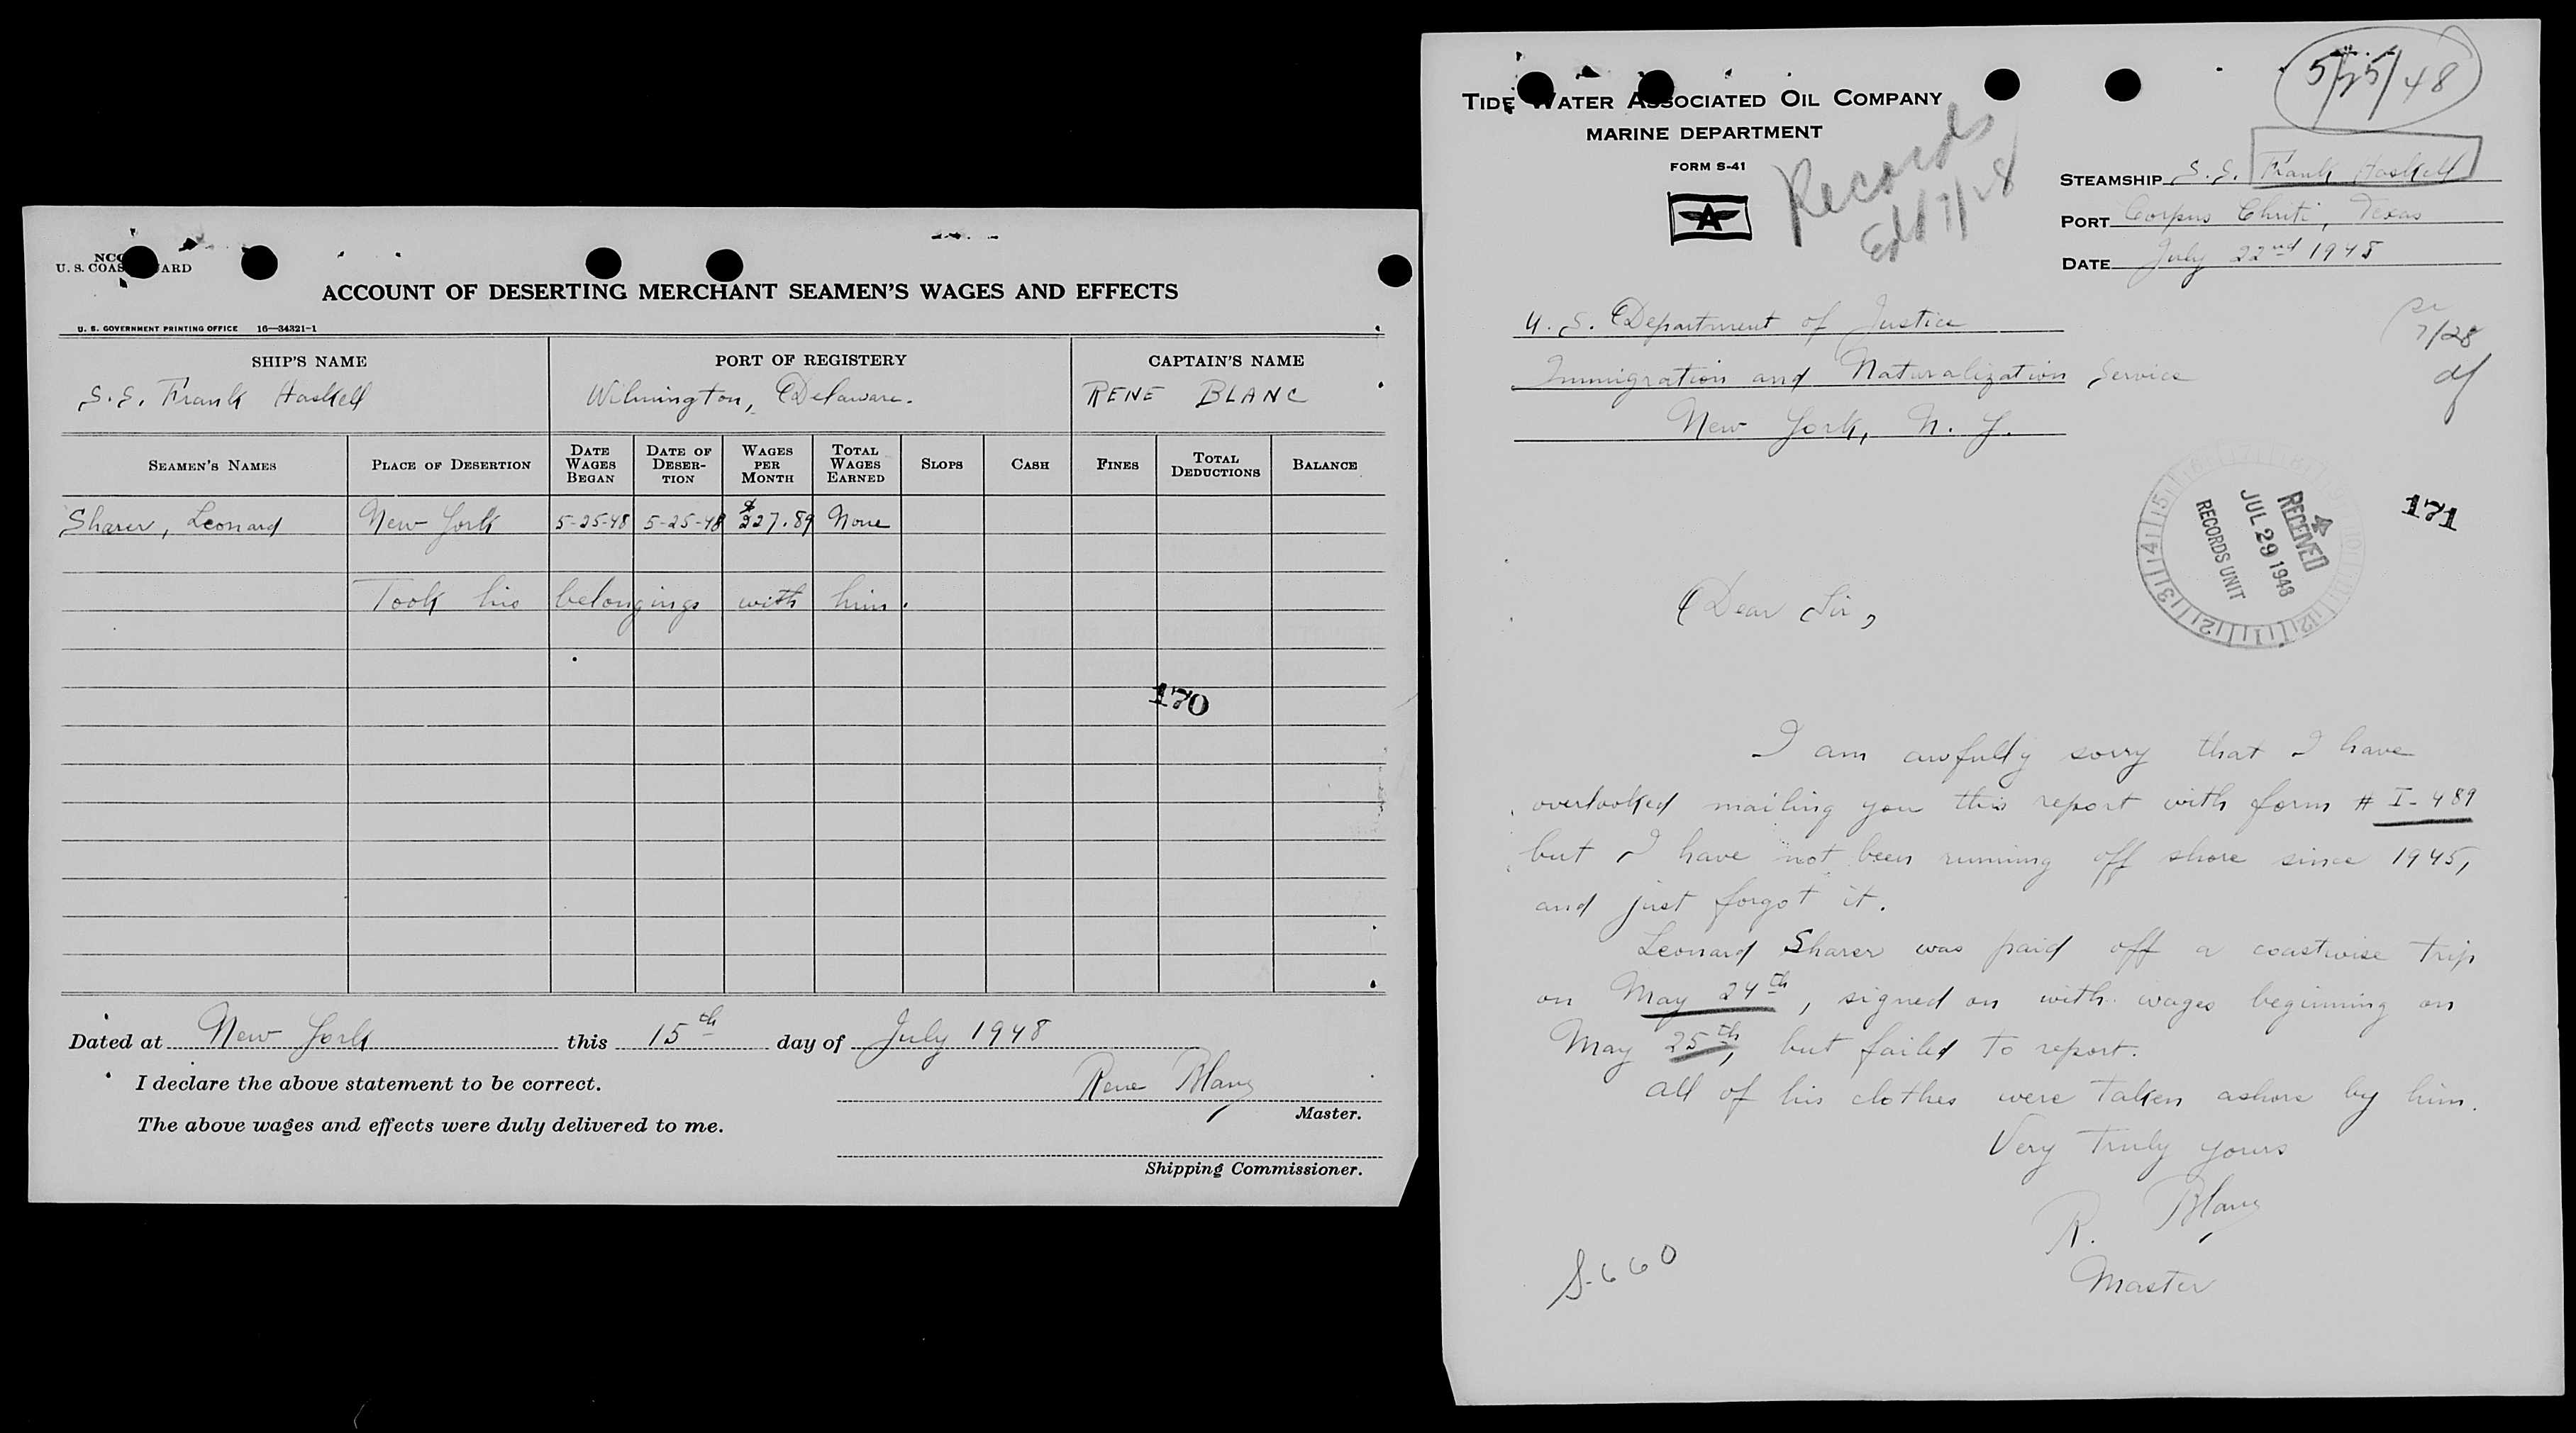 U. S. COAST GUARD
ACCOUNT OF DESERTING MERCHANT SEAMEN'S WAGES AND EFFECTS
U. S. GOVERNMENT PRINTING OFFICE 16—34321-1
SHIP'S NAME PORT OF REGISTERY CAPTAIN'S NAME
S.S. Frank Haskell Wilmington, Delaware. RENE BLANC
SEAMEN'S NAMES PLACE OF DESERTION DATE WAGES BEGAN DATE OF DESER-TION WAGES PER MONTH TOTAL WAGES EARNED SLOPS CASH FINES TOTAL DEDUCTIONS BALANCE
Sharer, Leonard New York 5-25-48 5-25-48 $227.89 None
Took his belongings with him.
170
Dated at New York this 15th day of July 1948
I declare the above statement to be correct. Rene Blanc
Master.
The above wages and effects were duly delivered to me.
Shipping Commissioner.
5/25/48
TIDE WATER ASSOCIATED OIL COMPANY
MARINE DEPARTMENT
FORM S-41
A
Records
7/28
STEAMSHIP S.S. Frank Haskell
PORT Corpus Chriti, Texas
DATE July 22nd 1948
U. S. Department of Justice
Immigration and Naturalization Service
New York, N. Y.
7/28
171
RECEIVED
JUL 29 1948
RECORDS UNIT
Dear Sir,
I am awfully sorry that I have
overlooked mailing you this report with form # I-489
but I have not been running off shore since 1945,
and just forgot it.
Leonard Sharer was paid off a coastwise trip
on May 24th, signed on with wages beginning on
May 25th, but failed to report.
All of his clothes were taken ashore by him.
Very truly yours
R. Blanc
Master
S-660